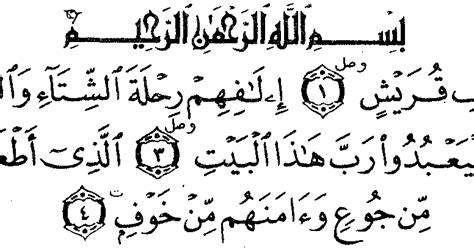 بِسْمِ ٱللَّهِ ٱلرَّحْمَٰنِ ٱلرَّحِيمِ
قُرَيْشٍ ۝١ إِۦلَٰفِهِمْ رِحْلَةَ ٱلشِّتَآءِ
يَعْبُدُوا۟ رَبَّ هَٰذَا ٱلْبَيْتِ ۝٣ ٱلَّذِىٓ أَطْعَ
مِّن جُوعٍ وَءَامَنَهُم مِّنْ خَوْفٍ ۝٤